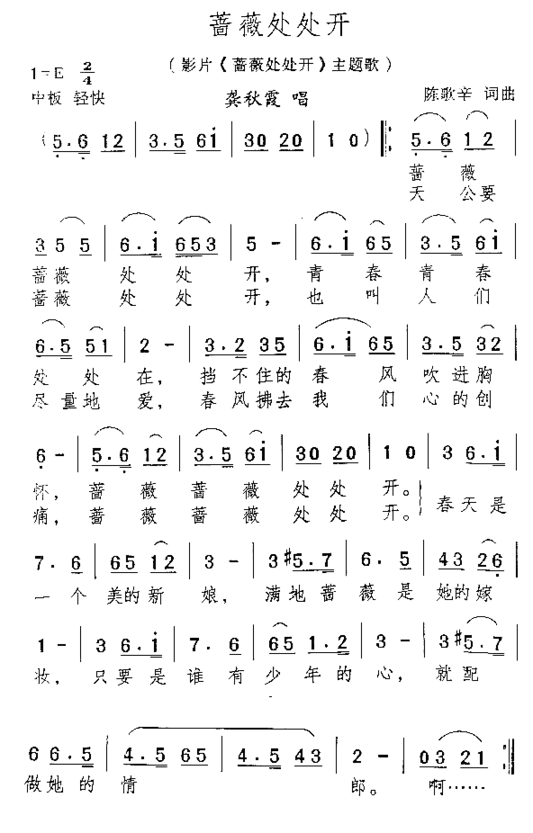 蔷薇处处开
(影片《蔷薇处处开》主题歌)
1=E 2/4
中板 轻快 龚秋霞 唱 陈歌辛 词曲
(5.6 12 | 3.5 6i | 30 20 | 1 0) ‖: 5.6 1 2 |
蔷 薇
天 公要
3 5 5 | 6.i 653 | 5 - | 6.i 65 | 3.5 6i |
蔷薇 处 处 开, 青 春 青 春
蔷薇 处 处 开, 也 叫 人 们
6.5 51 | 2 - | 3.2 35 | 6.i 65 | 3.5 32 |
处 处 在, 挡 不住的 春 风 吹进胸
尽量地 爱, 春风拂去 我 们 心的创
6 - | 5.6 12 | 3.5 6i | 30 20 | 1 0 | 3 6.i |
怀, 蔷 薇 蔷 薇 处 处 开。 春天是
痛, 蔷 薇 蔷 薇 处 处 开。
7. 6 | 65 12 | 3 - | 3 #5.7 | 6. 5 | 43 26 |
一 个 美的新 娘, 满地 蔷 薇 是 她的嫁
1 - | 3 6.i | 7. 6 | 65 1.2 | 3 - | 3 #5.7 |
妆, 只要是 谁 有 少年的 心, 就配
6 6.5 | 4.5 65 | 4.5 43 | 2 - | 03 21 :‖
做她的 情 郎。 啊……